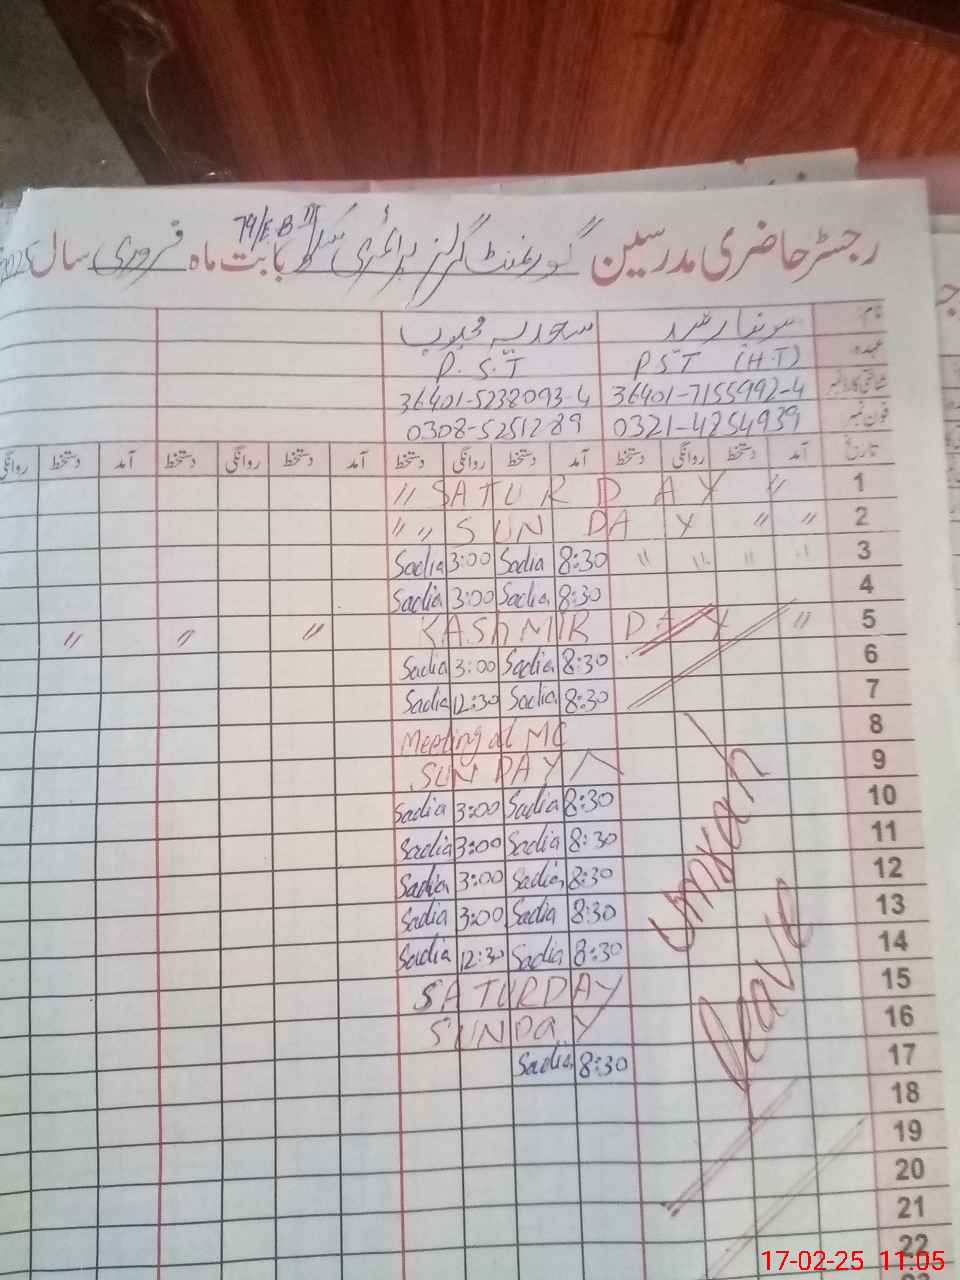 رجسٹر حاضری مدرسین گورنمنٹ گرلز پرائمری سکول 79/E.B بابت ماہ فروری سال
نام سعدیہ محبوب
عہدہ PST (H.T) P.S.T
شناختی کارڈ نمبر 36401-7155992-4 36401-5238093-4
فون نمبر 0321-4254939 0308-5251289
تاریخ آمد دستخط روانگی دستخط آمد دستخط روانگی دستخط آمد دستخط روانگی دستخط آمد دستخط روانگی
1 〃 SATURDAY 〃
2 〃 〃 SUNDAY 〃 〃
3 〃 〃 〃 〃 8:30 Sadia 3:00 Sadia
4 8:30 Sadia 3:00 Sadia
5 KASHMIR DAY 〃 〃 〃 〃
6 8:30 Sadia 3:00 Sadia
7 8:30 Sadia 12:30 Sadia
8 Meeting at MC
9 SUNDAY
10 8:30 Sadia 3:00 Sadia
11 8:30 Sadia 3:00 Sadia
12 8:30 Sadia 3:00 Sadia
13 8:30 Sadia 3:00 Sadia
14 8:30 Sadia 12:30 Sadia
15 SATURDAY
16 SUNDAY
17 8:30 Sadia
Umrah
Leave
18
19
20
21
22
17-02-25 11:05